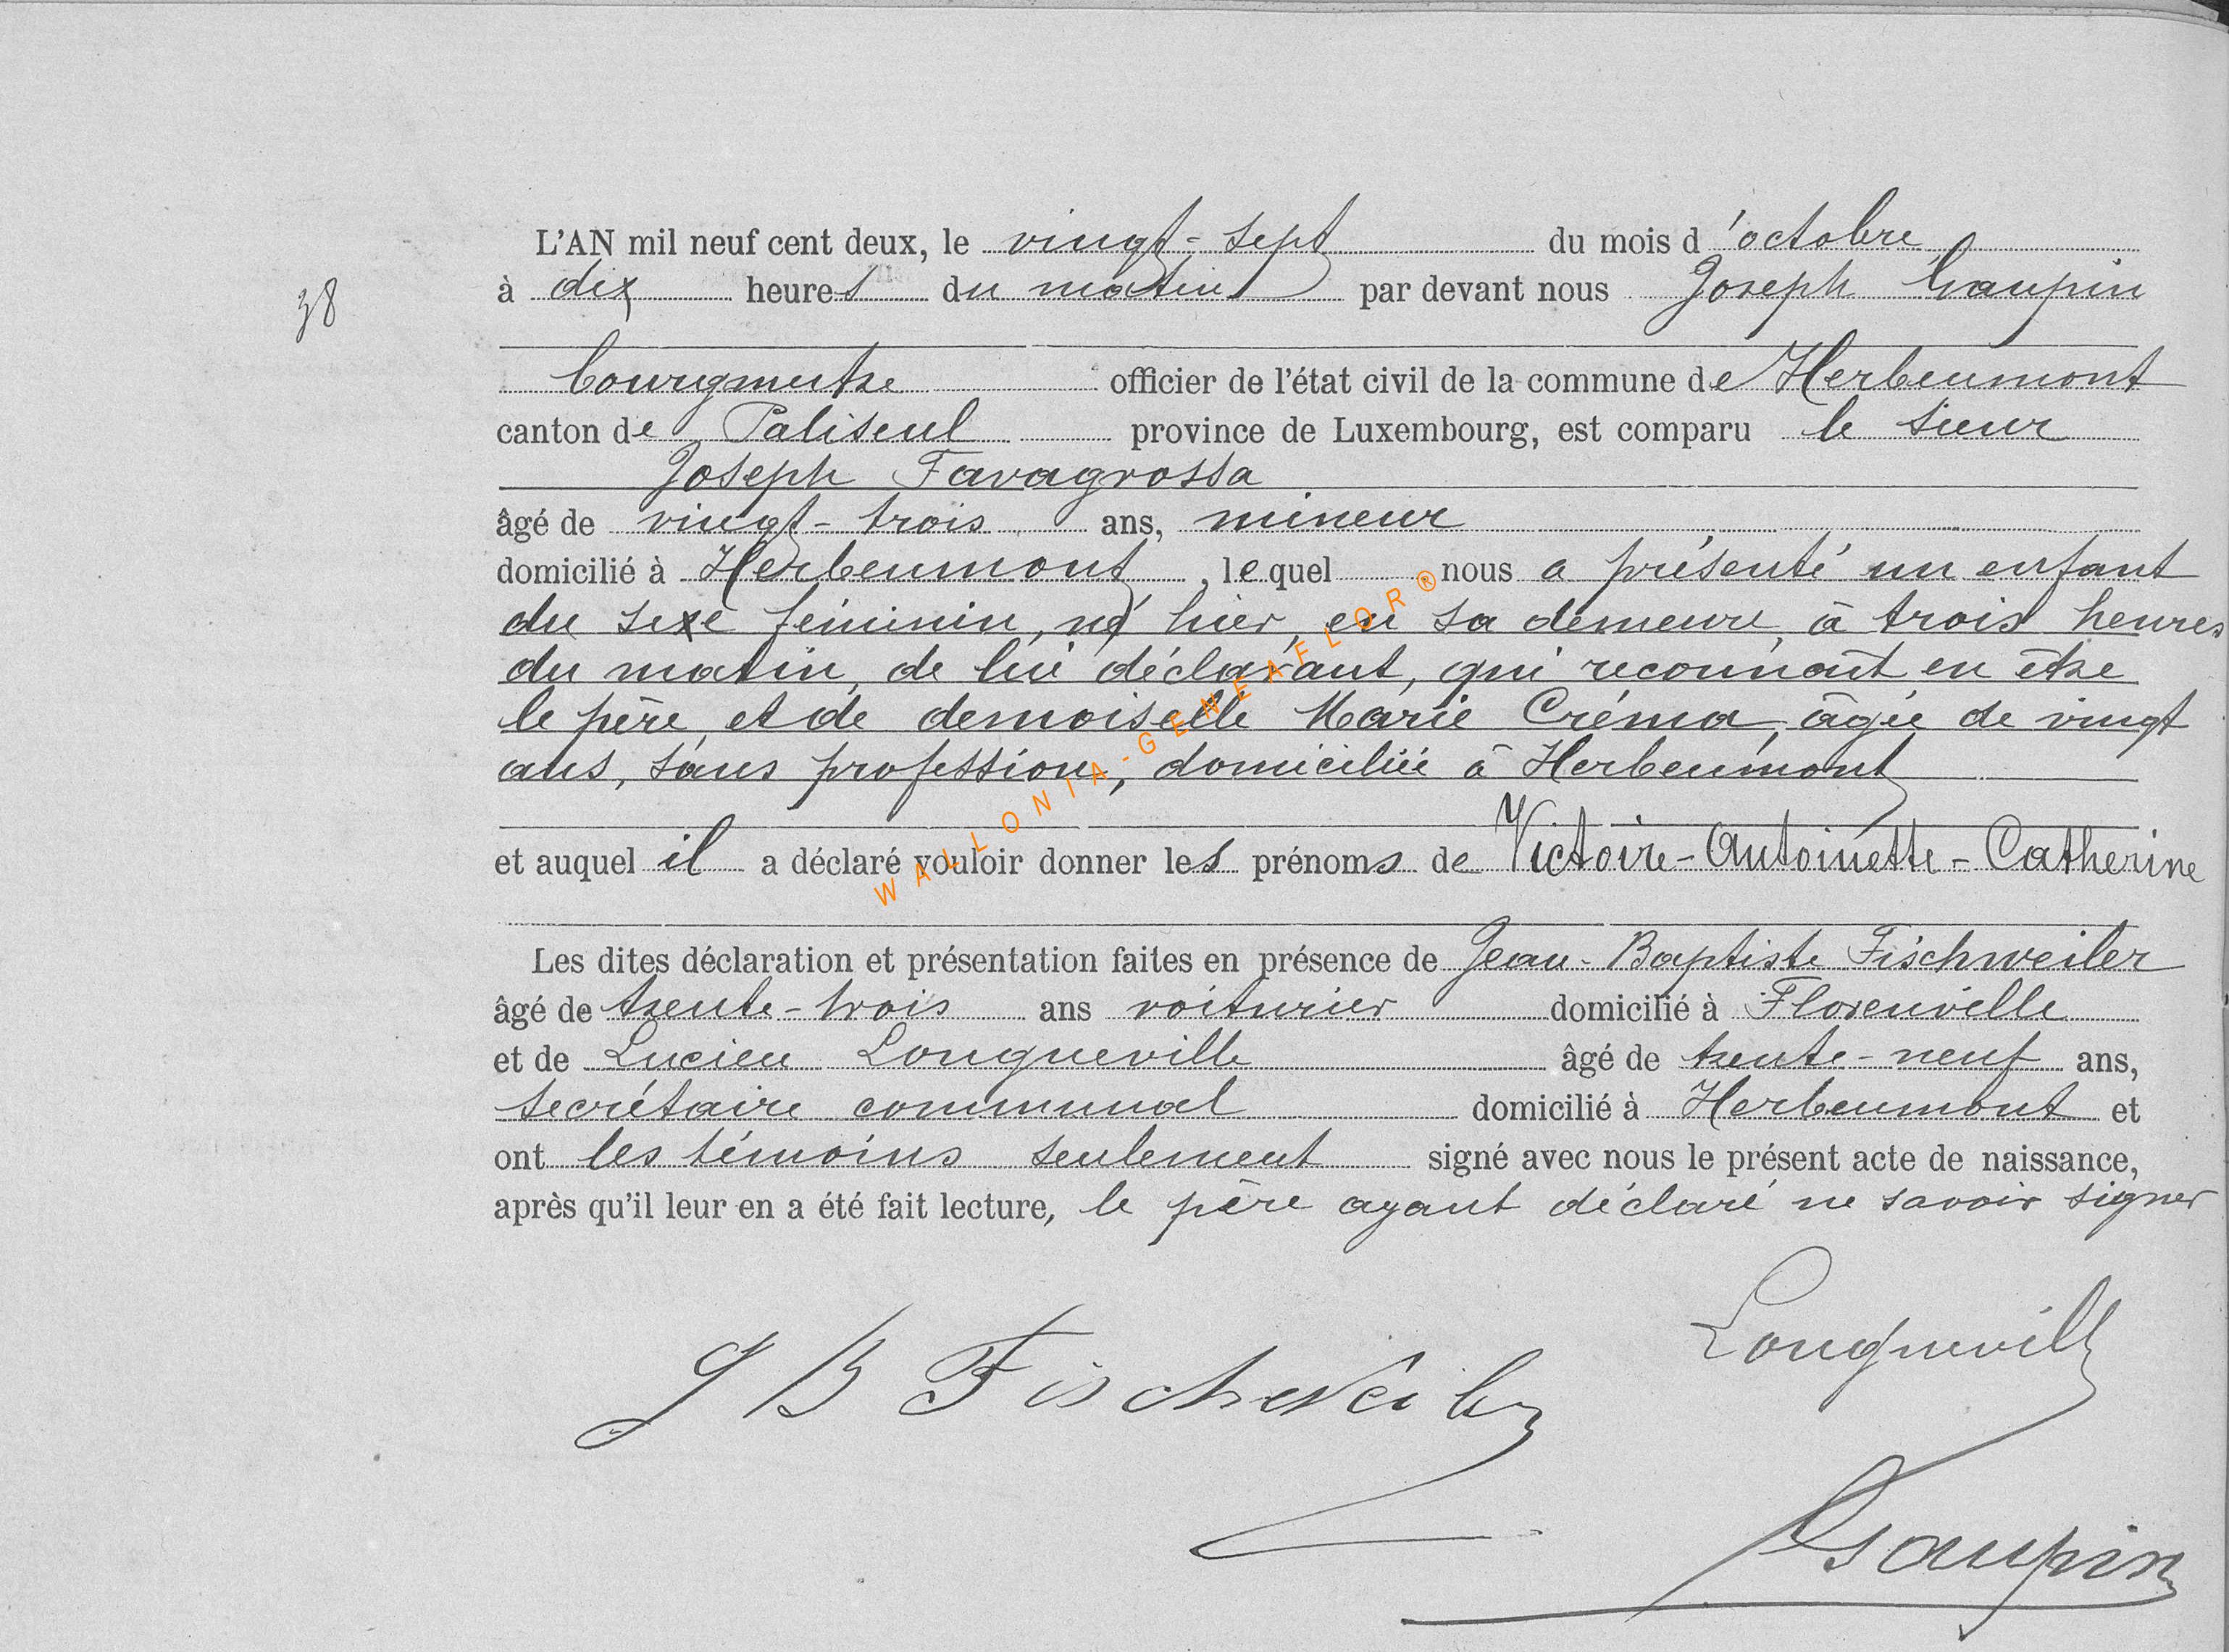 L'AN mil neuf cent deux, le vingt-sept du mois d'octobre
38
à dix heures du matin par devant nous Joseph Gaupin
Bourgmestre officier de l'état civil de la commune de Herbeumont
canton de Paliseul province de Luxembourg, est comparu le sieur
Joseph Favagrossa
âgé de vingt-trois ans, mineur
domicilié à Herbeumont, lequel nous a présenté un enfant
du sexe féminin, né hier, en sa demeure, à trois heures
du matin, de lui déclarant, qui reconnaît en être
le père, et de demoiselle Marie Créma, âgée de vingt
ans, sans profession, domiciliée à Herbeumont
et auquel il a déclaré vouloir donner les prénoms de Victoire-Antoinette-Catherine
Les dites déclaration et présentation faites en présence de Jean-Baptiste Fischweiler
âgé de trente-trois ans voiturier domicilié à Florenville
et de Lucien Longueville âgé de trente-neuf ans,
secrétaire communal domicilié à Herbeumont et
ont les témoins seulement signé avec nous le présent acte de naissance,
après qu'il leur en a été fait lecture, le père ayant déclaré ne savoir signer
Longueville
J B Fischweiler
Gaupin
WALLONIA-GENEAFLOR®